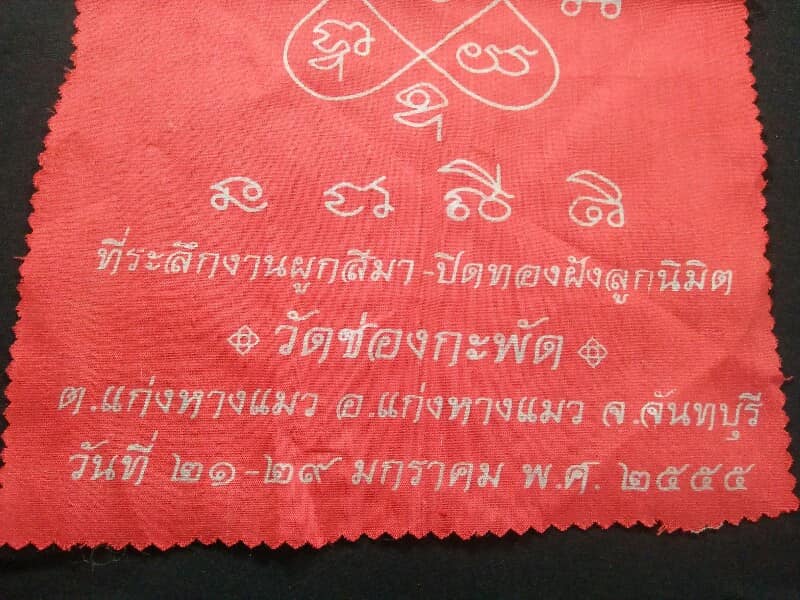 ที่ระลึกงานผูกสีมา-ปิดทองฝังลูกนิมิต
วัดช่องกะพัด
ต.แก่งหางแมว อ.แก่งหางแมว จ.จันทบุรี
วันที่ ๒๑-๒๙ มกราคม พ.ศ. ๒๕๕๕